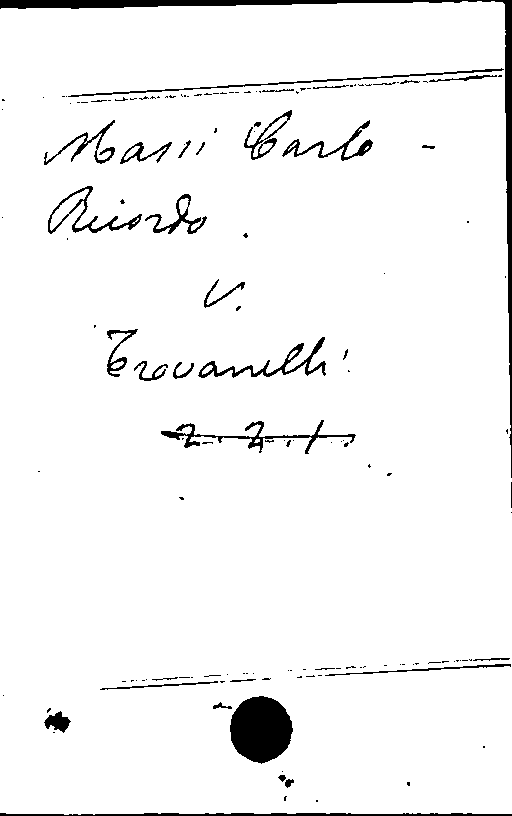 Massi Carlo -
Ricordo.
V.
Trovanelli
2.2.1.